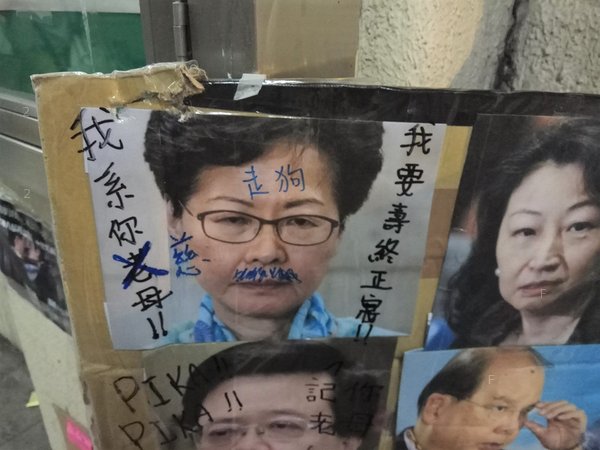 我系你慈母!!
走狗
我要壽終正寢!!
PIKA!!
PIKA!!
記者
你母